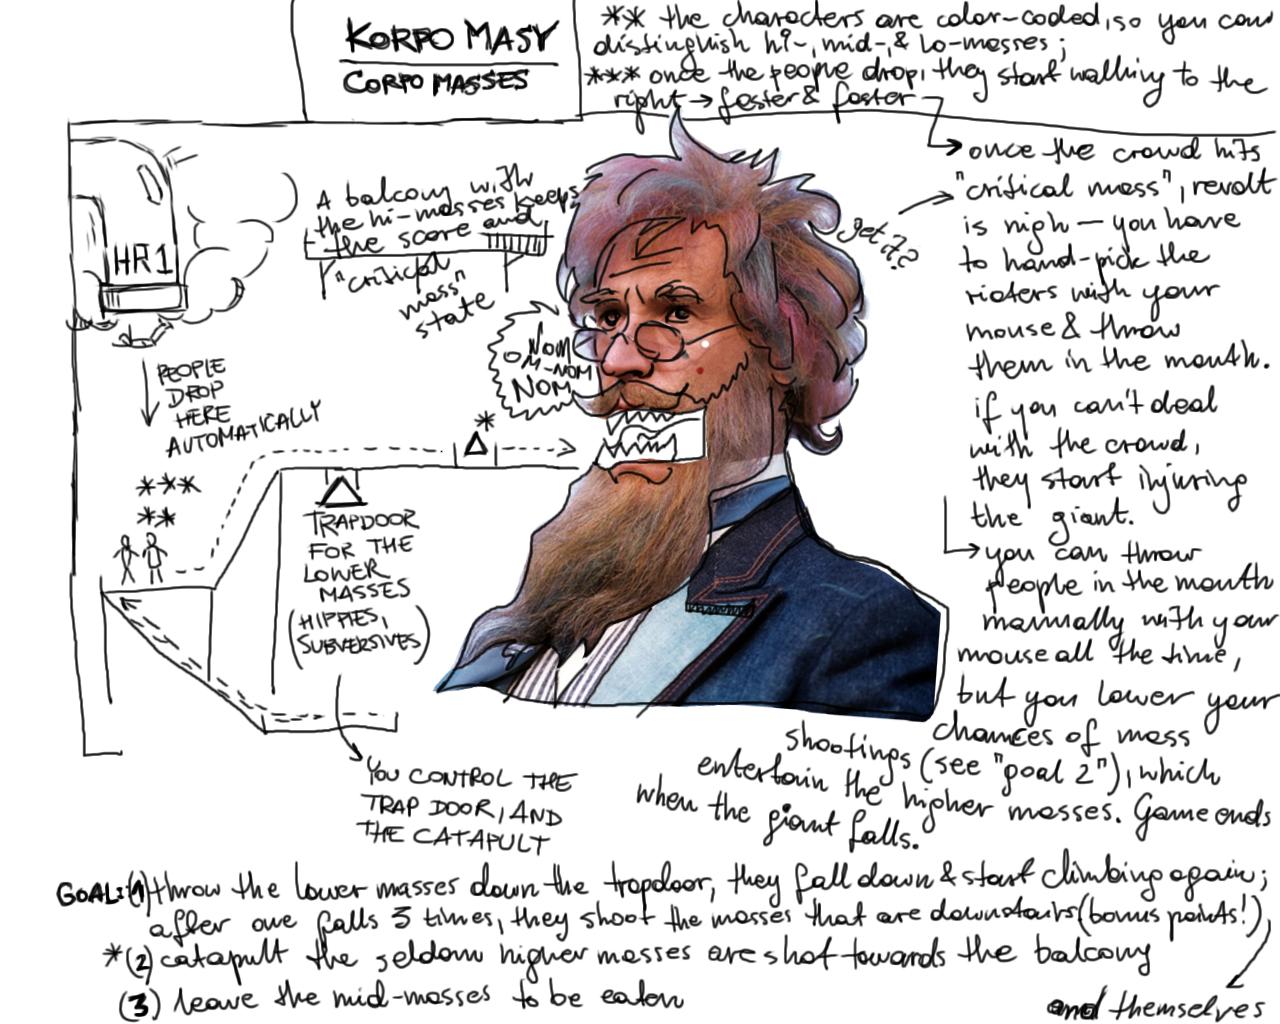 KORPO MASY
CORPO MASSES
** the characters are color-coded, so you can
distinguish hi-, mid-, & lo-masses;
*** once the people drop, they start walking to the
right → faster & faster
once the crowd hits
"critical mass", revolt
is nigh — you have
to hand-pick the
rioters with your
mouse & throw
them in the mouth.
if you can't deal
with the crowd,
they start injuring
the giant.
you can throw
people in the mouth
manually with your
mouse all the time,
but you lower your
chances of mass
shootings (see "goal 2"), which
entertain the higher masses. Game ends
when the giant falls.
get it?
HR1
A balcony with
the hi-masses keeps
the score and
"critical
mass"
state
NOM
OM-NOM
NOM
PEOPLE
DROP
HERE
AUTOMATICALLY
*
***
**
TRAPDOOR
FOR THE
LOWER
MASSES
(HIPPIES,
SUBVERSIVES)
YOU CONTROL THE
TRAP DOOR, AND
THE CATAPULT
GOAL: (1) throw the lower masses down the trapdoor, they fall down & start climbing again;
after one falls 3 times, they shoot the masses that are downstairs (bonus points!),
and themselves
* (2) catapult the seldom higher masses are shot towards the balcony
(3) leave the mid-masses to be eaten